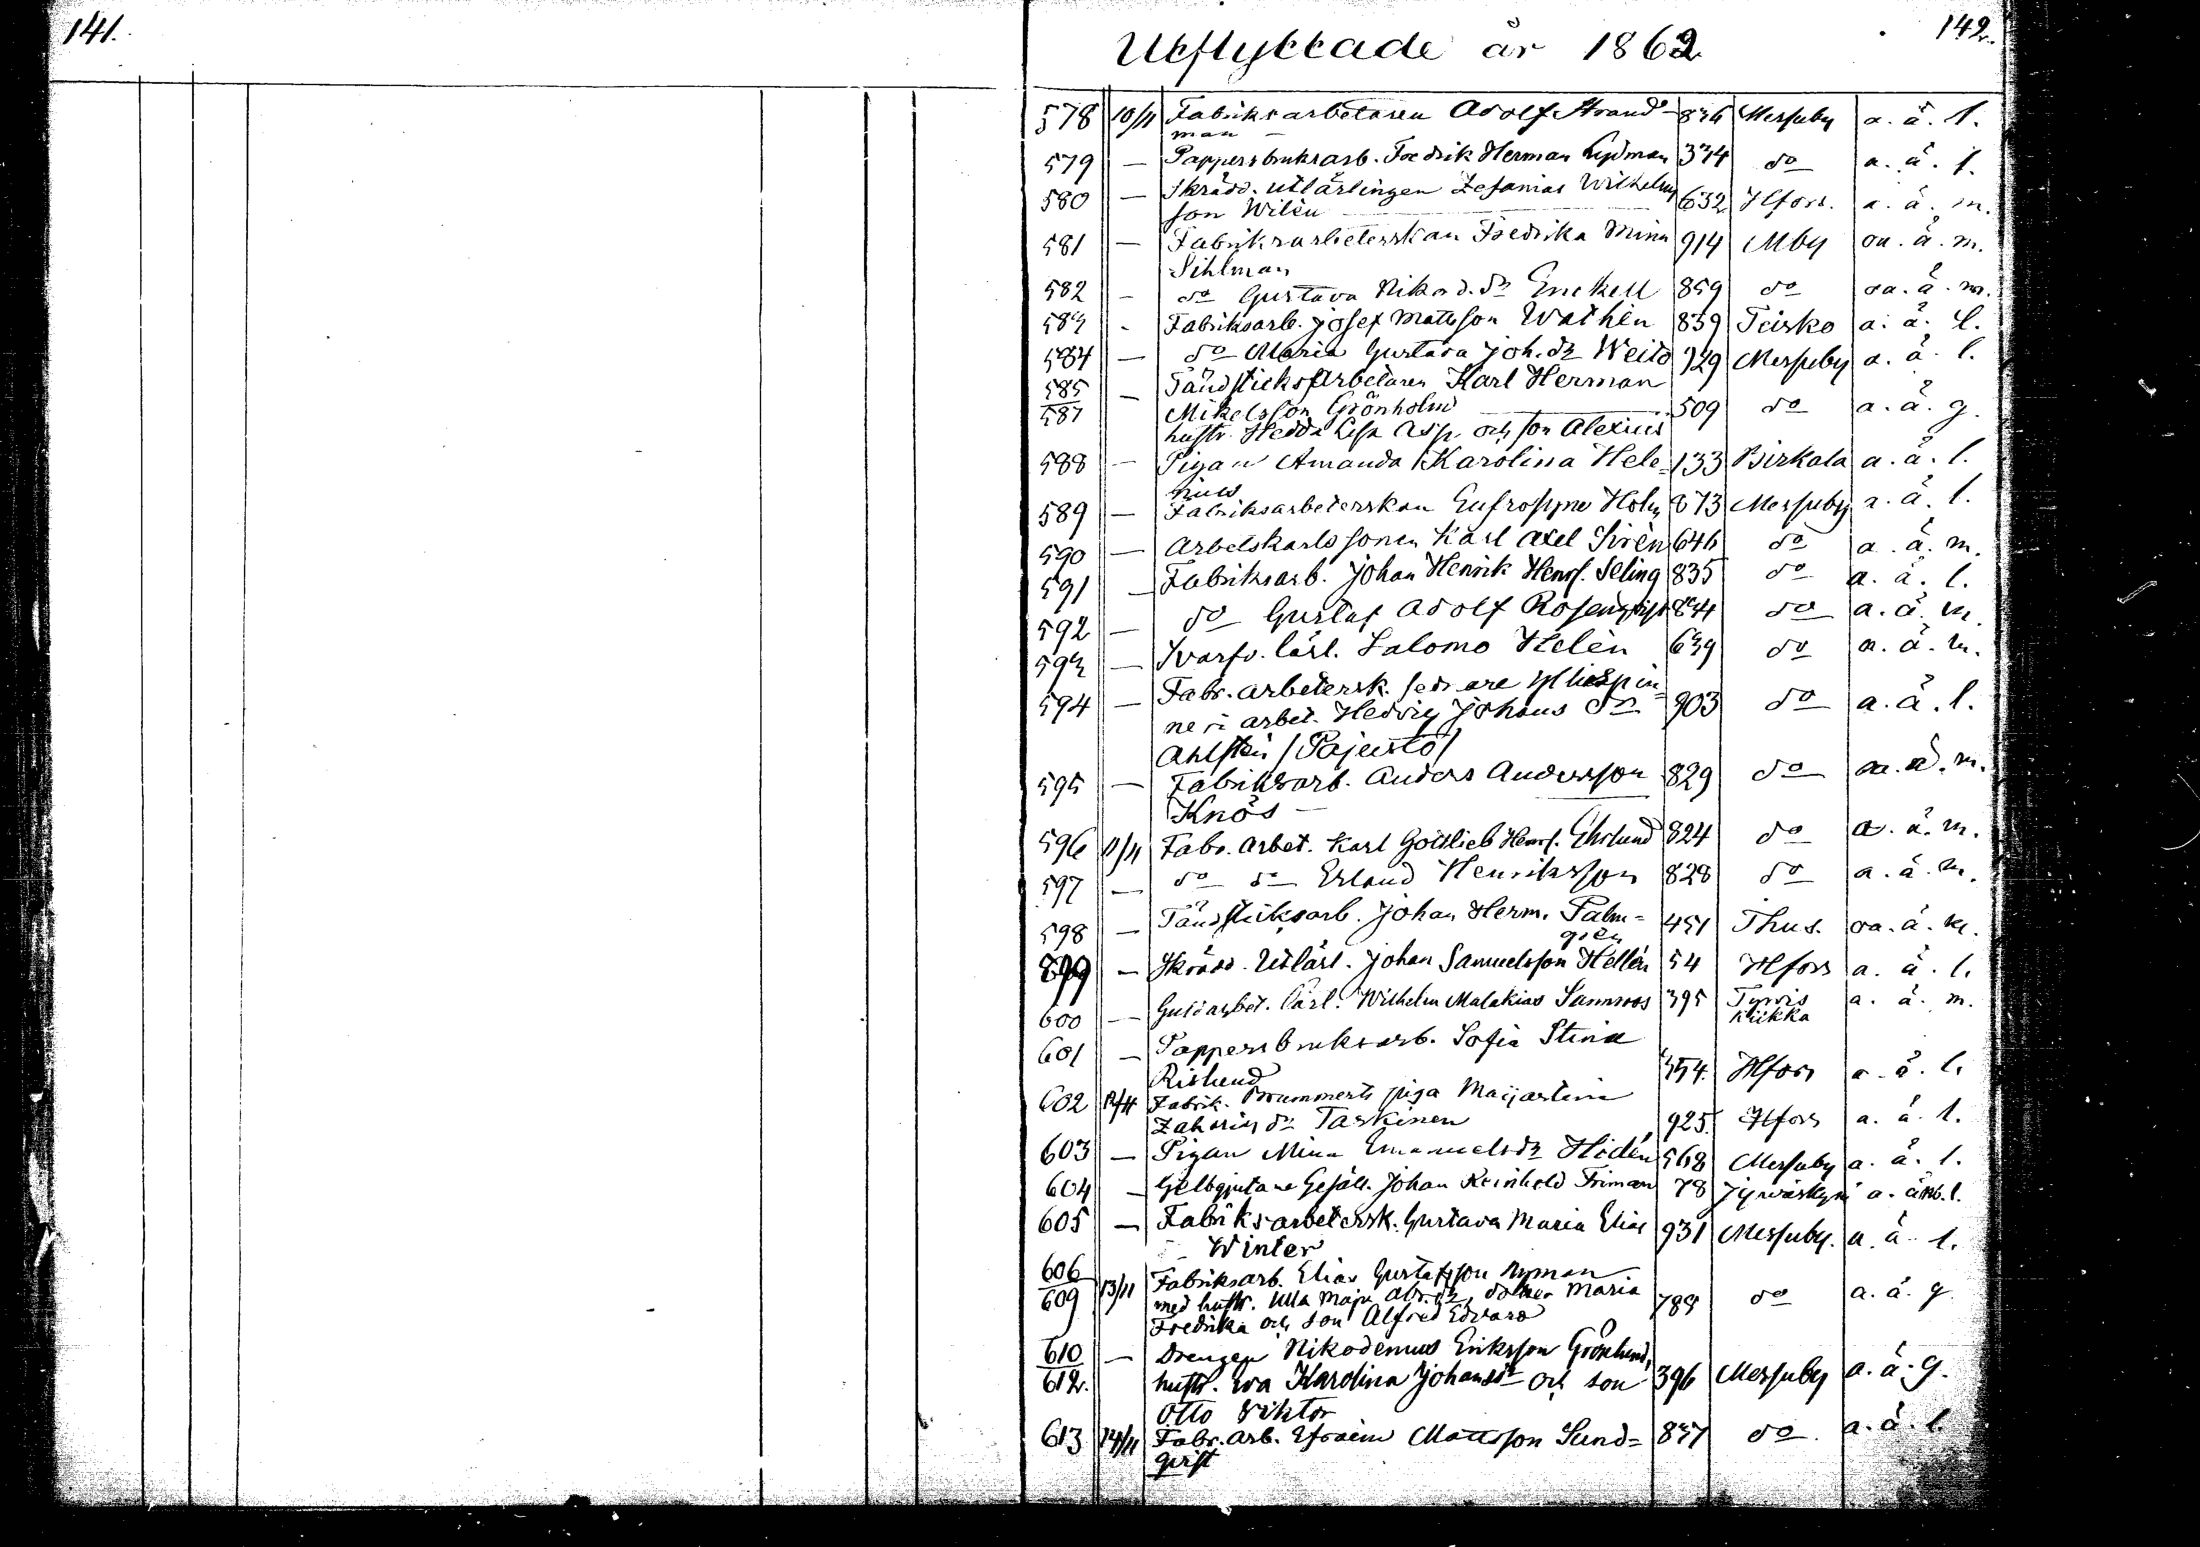 141.
142.
Utflyttade år 1862
578 10/11 Fabriksarbetaren Adolf Strand- 836 Messuby a. å. l.
man
579 — Pappersbruksarb. Fredrik Herman Lydman 334 do a. å. l.
580 — Skrädd. utlärlingen Zefanias Wilhelms
son Wilén 632 Hfors. a. å. m.
581 — Fabriksarbeterskan Fredrika Mina 914 Mby oa. å. m.
Sihlman
582 — do Gustava Nikod. dr Enckell 859 do oa. å. m.
583 - Fabriksarb. Josef Mattsson Wathén 839 Teisko a. å. l.
584 — do Maria Gustava Joh. dr Weito 929 Messuby a. å. l.
585 — Tändsticksarbetaren Karl Herman
587 Mikelsson Grönholm 509 do a. å. g.
hustr. Hedda Lisa Asp och son Alexius
588 — Pigan Amanda Karolina Hele= 133 Birkala a. å. l.
nius
589 — Fabriksarbeterskan Eufrosyne Holm 873 Messuby a. å. l.
590 — Arbetskarlssonen Karl Axel Sirén 646 do a. å. m.
591 — Fabriksarb. Johan Henrik Henrs. Seling 835 do a. å. l.
592 — do Gustaf Adolf Rosenqvist 834 do a. å. m.
593 — Svarfv. lärl. Salomo Helén 639 do a. å. m.
594 — Fabr. arbetersk. sednare ylle spin=
neri arbet. Hedvig Johans dr 903 do a. å. l.
Ahlstén /Pajusto/
595 — Fabriksarb. Anders Andersson 829 do oa. å. m.
Knös —
596 11/11 Fabr. arbet. Karl Gottlieb Henrs. Ehrlund 824 do a. å. m.
597 — do do Erland Henriksson 828 do a. å. m.
598 — Tändsticksarb. Johan Herm. Palm= 451 Thus. oa. å. m.
grén
599 — Skrädd. Utlärl. Johan Samuelsson Hellén 54 Hfors a. å. l.
600 — Guldarbet. lärl. Wilhelm Malakias Sannroos 395 Tyrvis a. å. m.
Kiikka
601 — Pappersbruksarb. Sofia Stina
Rislund 354. Hfors a. å. l.
602 12/11 Fabrik. Brummerts piga Maijastina
Zakarias dr Taskinen 925. Hfors a. å. l.
603 — Pigan Mina Emanuels dr Hidén 568 Messuby a. å. l.
604 — Gelbgjutare Gesäll. Johan Reinhold Friman 78 Jyväskylä a. å. l.
605 — Fabriksarbetersk. Gustava Maria Elias 931 Messuby. a. å. l.
Winter
606 13/11 Fabriksarb. Elias Gustafsson Nyman
609 med hustr. Ulla Maja Abr. dr, dotter Maria 789 do a. å. g.
Fredrika och son Alfred Edvard
610 — Drengen Nikodemus Eriksson Grönlund,
612. hustr. Eva Karolina Johans dr och son 396 Messuby a. å. g.
Otto Viktor
613 14/11 Fabr. arb. Efraim Mattsson Sund= 837 do a. å. l.
qvist